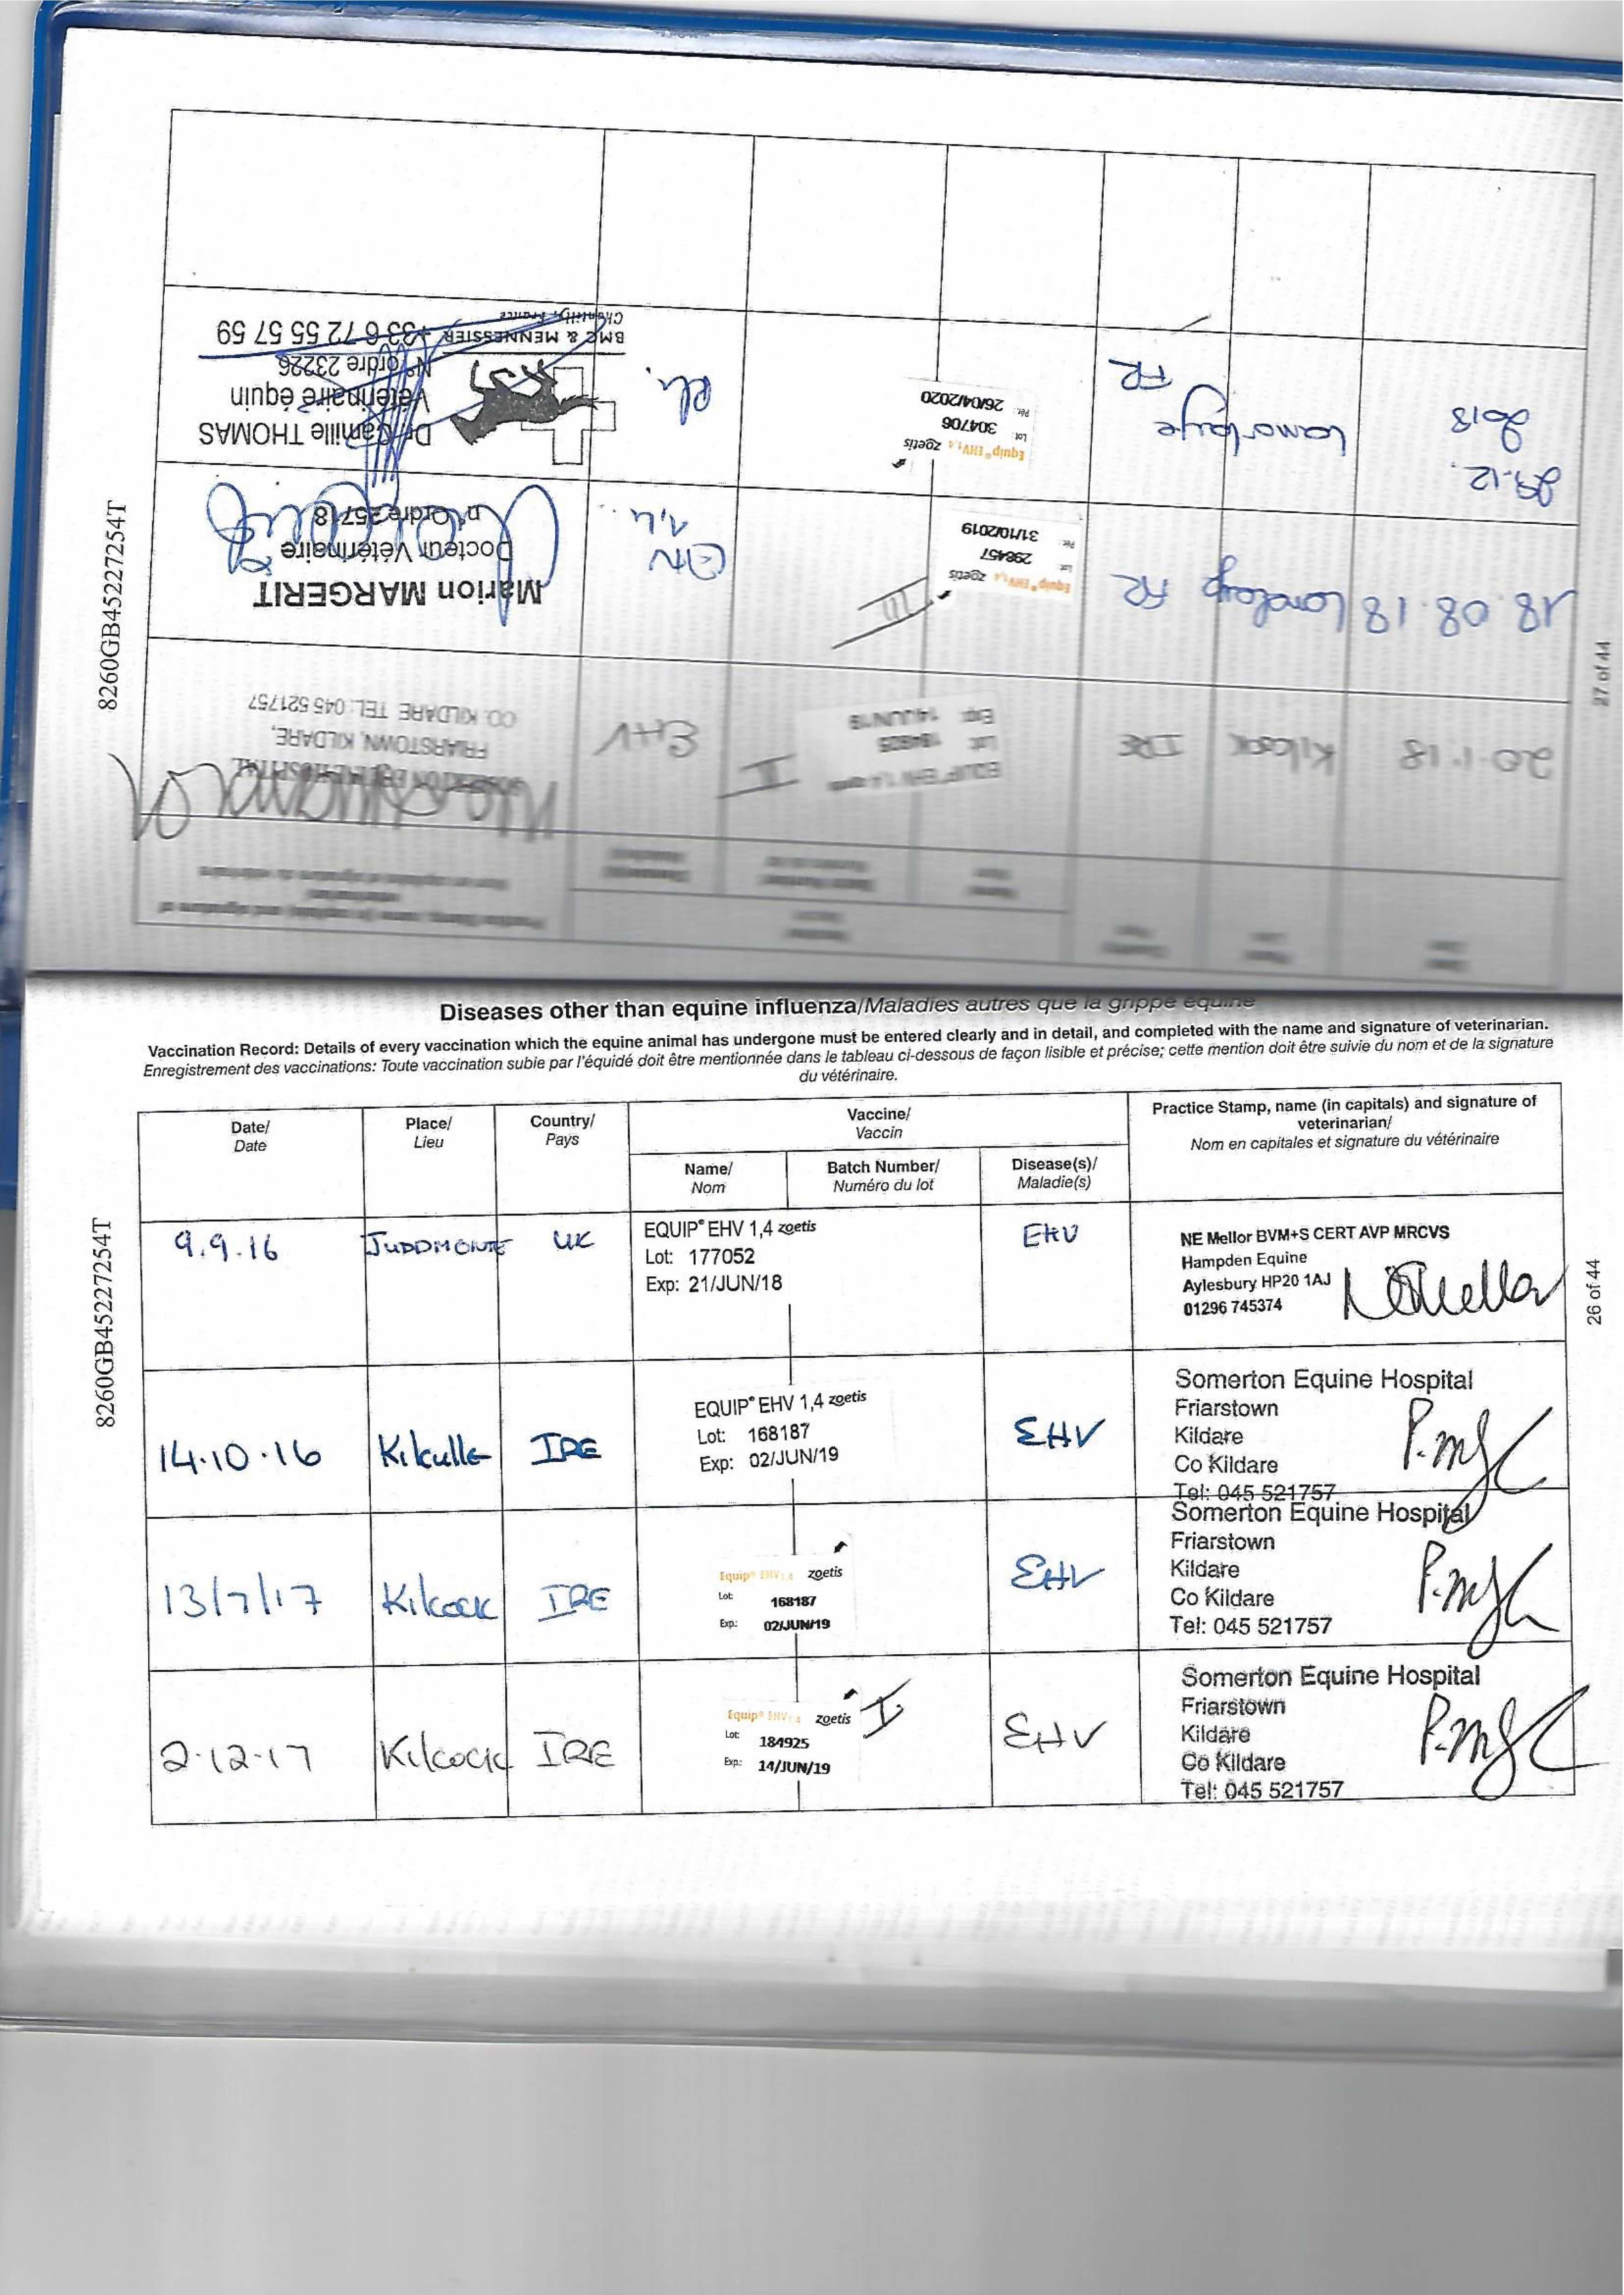 Diseases other than equine influenza/Maladies autres que la grippe équine
Vaccination Record: Details of every vaccination which the equine animal has undergone must be entered clearly and in detail, and completed with the name and signature of veterinarian.
Enregistrement des vaccinations: Toute vaccination subie par l'équidé doit être mentionnée dans le tableau ci-dessous de façon lisible et précise; cette mention doit être suivie du nom et de la signature
du vétérinaire.
Date/
Date
Place/
Lieu
Country/
Pays
Vaccine/
Vaccin
Name/
Nom
Batch Number/
Numéro du lot
Disease(s)/
Maladie(s)
Practice Stamp, name (in capitals) and signature of
veterinarian/
Nom en capitales et signature du vétérinaire
9.9.16
JUDDMONTE
UK
EQUIP® EHV 1,4 zoetis
Lot: 177052
Exp: 21/JUN/18
EHV
NE Mellor BVM+S CERT AVP MRCVS
Hampden Equine
Aylesbury HP20 1AJ
01296 745374
14.10.16
Kilculle
IRE
EQUIP® EHV 1,4 zoetis
Lot: 168187
Exp: 02/JUN/19
EHV
Somerton Equine Hospital
Friarstown
Kildare
Co Kildare
Tel: 045 521757
13/7/17
Kilcock
IRE
Equip® EHV 1,4 zoetis
Lot: 168187
Exp.: 02/JUN/19
EHV
Somerton Equine Hospital
Friarstown
Kildare
Co Kildare
Tel: 045 521757
2.12.17
Kilcock
IRE
Equip® EHV 1,4 zoetis
I
Lot: 184925
Exp: 14/JUN/19
EHV
Somerton Equine Hospital
Friarstown
Kildare
Co Kildare
Tel: 045 521757
8260GB45227254T
26 of 44
20.1.18
Kilcock
IRE
EQUIP EHV 1,4
Lot: 184925
Exp: 14JUN19
II
EHV
SOMERTON EQUINE HOSPITAL
FRIARSTOWN, KILDARE,
CO. KILDARE TEL: 045 521757
18.08.18
FR
Equip® EHV1,4 zoetis
Lot 298457
Pér. 31/10/2019
III
1,4
Marion MARGERIT
Docteur Vétérinaire
n° Ordre 25718
29.12.
2018
Lamorlaye
FR
Equip® EHV1,4 zoetis
Lot 304706
Pér. 26/04/2020
Dr Camille THOMAS
Vétérinaire équin
N° ordre 23226
+33 6 72 55 57 59
BMC & MENNESSIER
Chantilly, France
8260GB45227254T
27 of 44